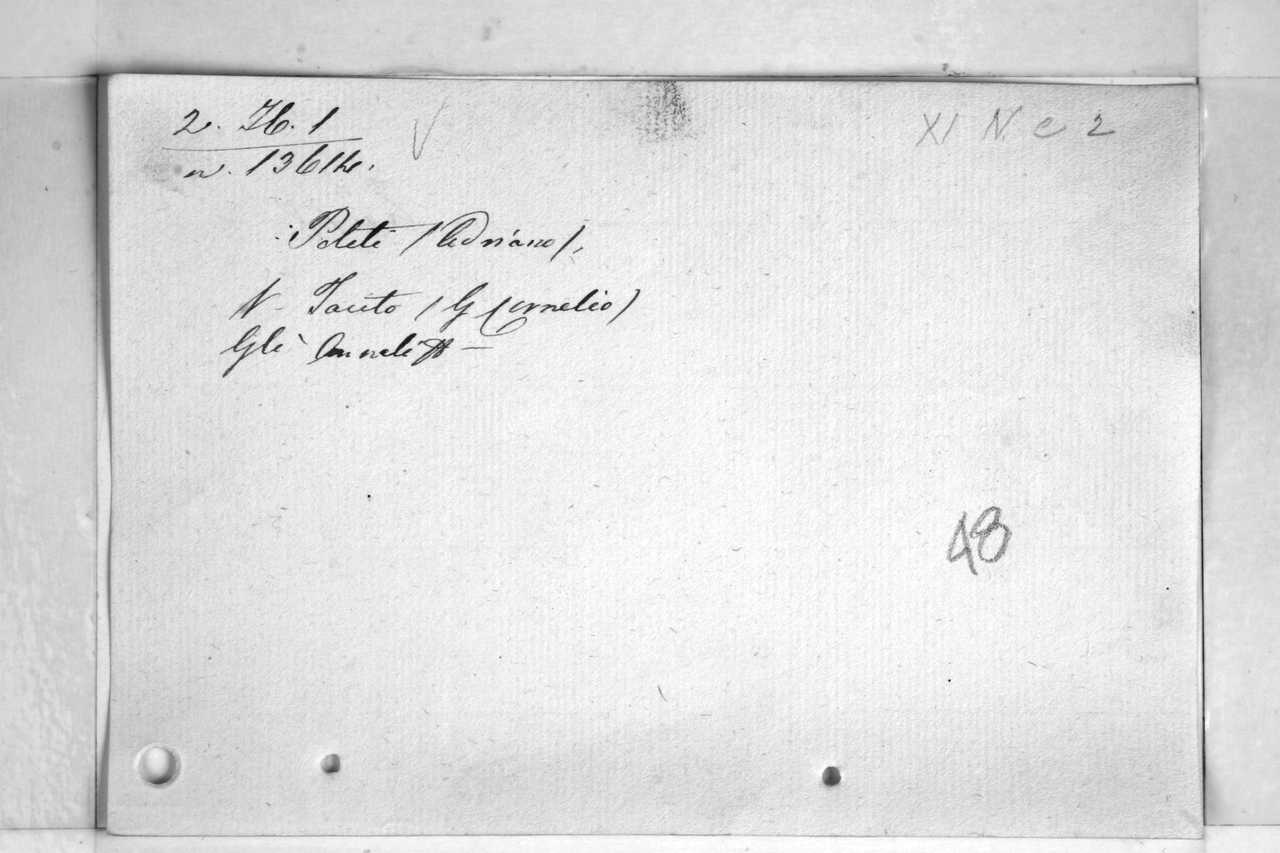 2. H. 1
XI N c 2
n. 1361
Politi (Adriano).
V. Tacito (G Cornelio)
Gli Annali
48